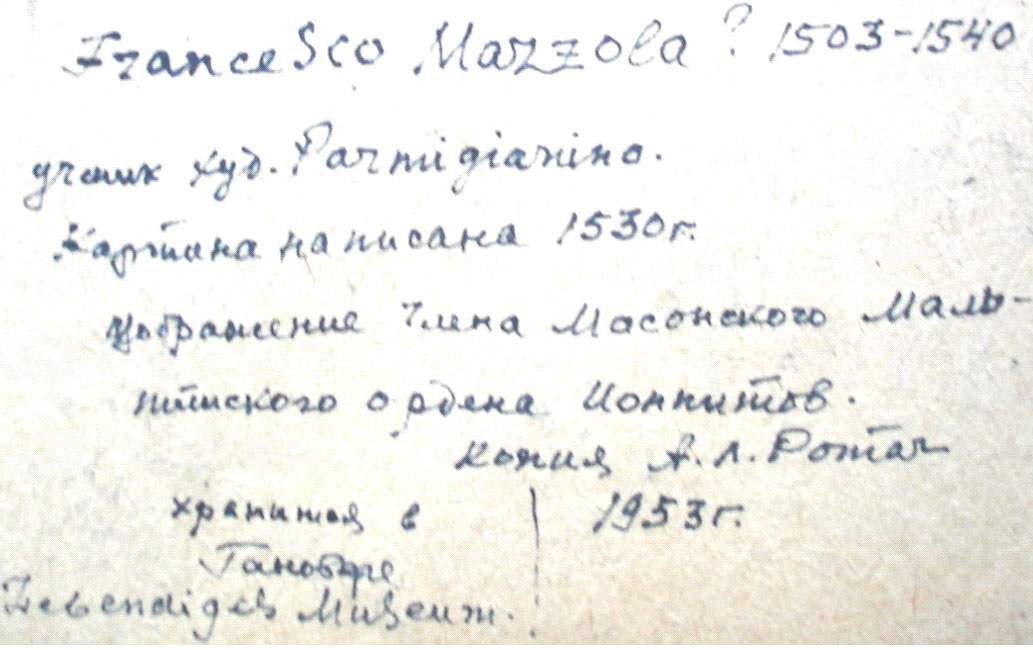 Francesco Mazzola ? 1503-1540
ученик худ. Parmigianino.
Картина написана 1530г.
Изображение члена Масонского Маль-
тийского ордена Ионнитов.
копия А.Л. Ротач
хранится в | 1953г.
Ганновере
Lebendiges Museum.